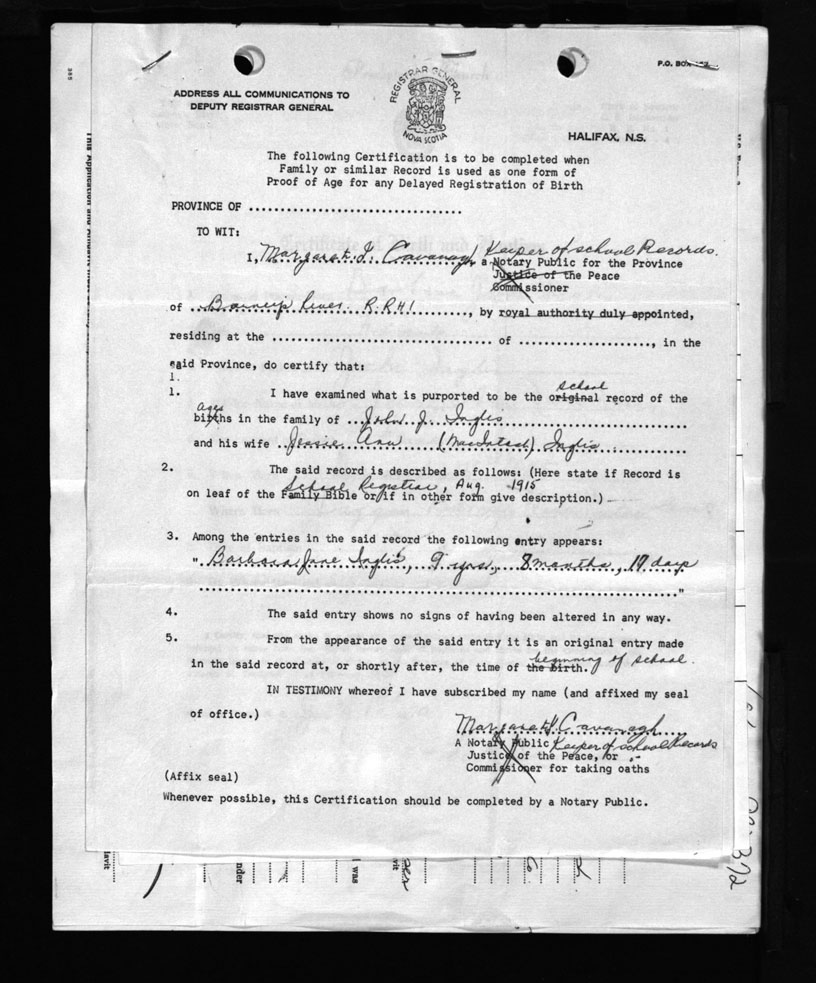 ADDRESS ALL COMMUNICATIONS TO
DEPUTY REGISTRAR GENERAL
REGISTRAR GENERAL
NOVA SCOTIA
P.O. BOX
HALIFAX, N.S.
The following Certification is to be completed when
Family or similar Record is used as one form of
Proof of Age for any Delayed Registration of Birth
PROVINCE OF ................................
TO WIT:
Keeper of school Records.
I, Margaret I. Cavanagh, a Notary Public for the Province
Justice of the Peace
Commissioner
of Barneys River R.R#1, by royal authority duly appointed,
residing at the ................................. of ...................., in the
said Province, do certify that:
1.
school
1. I have examined what is purported to be the original record of the
ages
births in the family of John J. Inglis
and his wife Jessie Ann (MacIntosh) Inglis
2. The said record is described as follows: (Here state if Record is
School Register, Aug. 1915
on leaf of the Family Bible or if in other form give description.)
3. Among the entries in the said record the following entry appears:
" Barbara Jane Inglis, 9 yrs., 8 months, 17 days
"
4. The said entry shows no signs of having been altered in any way.
5. From the appearance of the said entry it is an original entry made
beginning of school.
in the said record at, or shortly after, the time of the birth.
IN TESTIMONY whereof I have subscribed my name (and affixed my seal
of office.)
Margaret I. Cavanagh
A Notary Public Keeper of school Records
Justice of the Peace, or
Commissioner for taking oaths
(Affix seal)
Whenever possible, this Certification should be completed by a Notary Public.